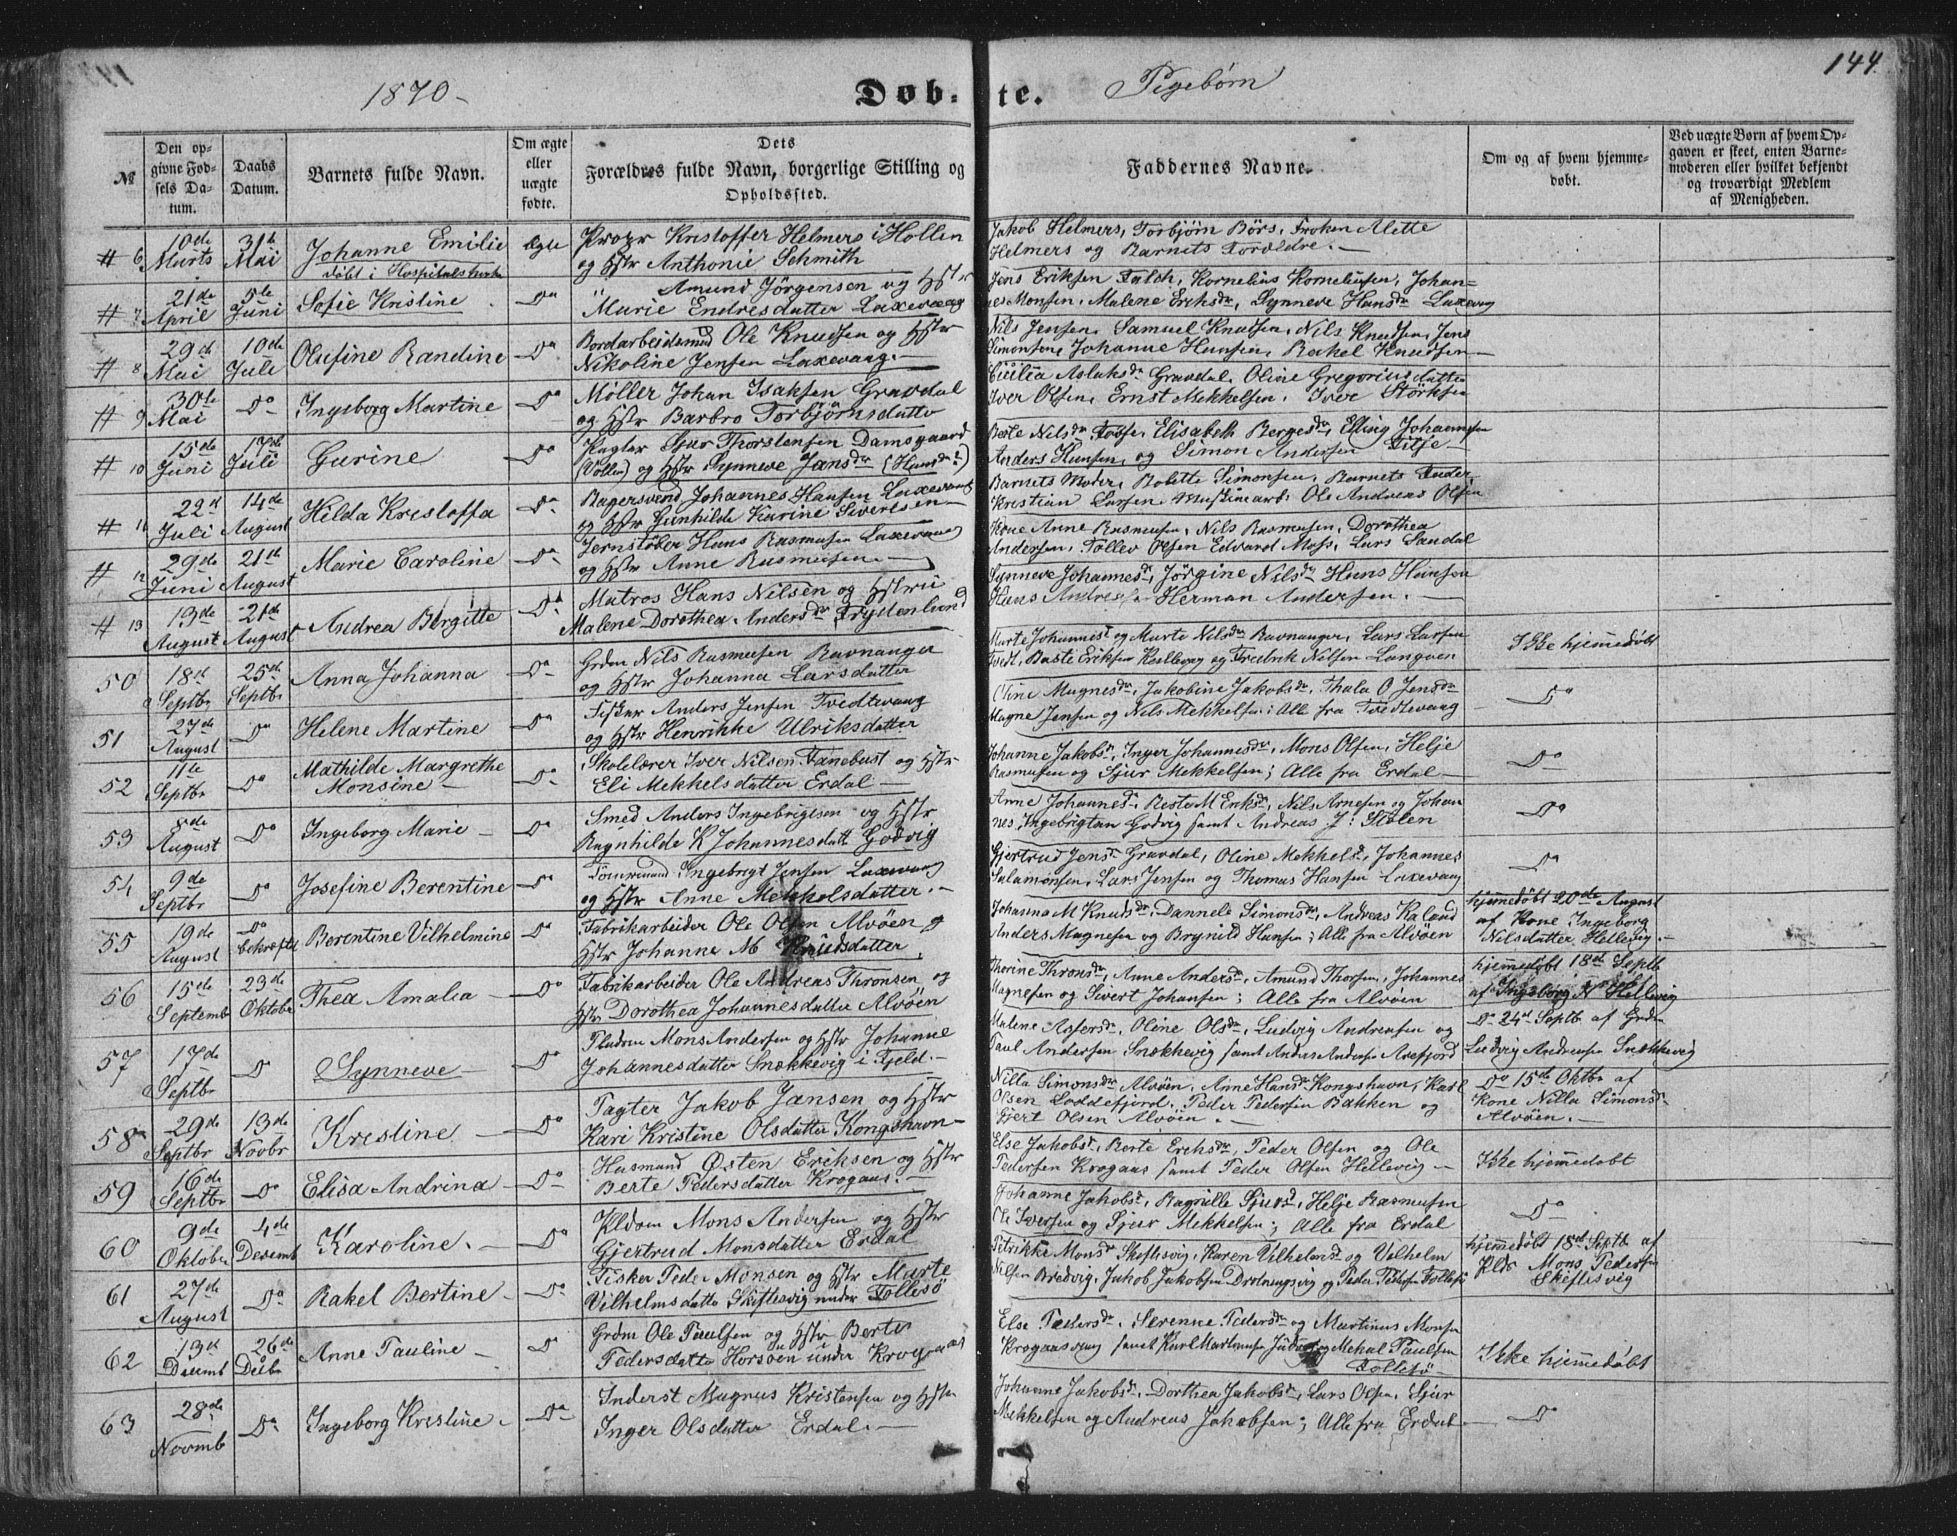 1870 -
Døb-te.
Pigebørn
144.
№
Den op-
givne Fød-
sels Da-
tum.
Daabs
Datum.
Barnets fulde Navn.
Om ægte
eller
uægte
fødte.
Dets
Forældres fulde Navn, borgerlige Stilling og
Opholdssted.
Faddernes Navne.
Om og af hvem hjemme-
døbt.
Ved uægte Børn af hvem Op-
gaven er skeet, enten Barne-
moderen eller hvilket bekjendt
og troværdigt Medlem
af Menigheden.
# 6 10de Marts 31te Mai Johanne Emilie ægte Kristoffer Helmers i Hollen
døbt i Hospitalskirke og Hstr Anthonie Schmith
Jakob Helmers, Torbjørn Börs, Frøken Alette
Helmers og Barnets Forældre. -
# 7 21de April 5te Juni Sofie Kristine Do " Amund Jörgensen og Hstr
Marie Endresdatter Laxevaag
Jens Eriksen Falch, Kornelius Kornelinsen, Johan-
nes Monsen, Malene Eriksdr, Synneve Hansdr Laxevaag
# 8 29de Mai 10de Juli Olufine Randine Do Bordarbeidsmd Ole Knudsen og Hstr
Nikoline Jensen Laxevaag. -
Nils Jensen, Samuel Knudsen, Nils Knudsen, Jens
Simonsen, Johanne Hansen, Rakel Knudsen -
# 9 30te Mai Do Ingeborg Martine Do Møller Johan Isaksen Gravdal
og Hstr Barbro Torbjørnsdatter
Cicilia Aslaksdr Gravdal, Oline Gregoriusdatter
Iver Olsen, Ernst Mekkelsen, Iver Störksen
# 10 15de Juni 17de Juli Gurine Do Sjur Thorstensen Damsgaard
og Hstr Synneve Jansdr (Hansdr?)
Berte Nilsdr Fosse, Elisabeth Bergesdr, Elling Johannesen
Anders Hansen, og Simon Andersen Fitje -
# 11 22d Juli 14de August Hilda Kristoffa Do Bagersvend Johannes Hansen Laxevaag
og Hstr Gunhilde Karine Sivertsen -
Barnets Moder, Bolette Simonsen, Barnets Fader,
Kristian Larsen, Maskinarb. Ole Andreas Olsen
# 12 29de Juni 21de August Marie Caroline Do Jernstøber Hans Rasmusen Laxevaag
og Hstr Anne Rasmusen. -
Kone Anne Rasmusen, Nils Rasmusen, Dorothea
Andersen, Tollev Olsen Edvardt Moss, Lars Sandal
# 13 13de August 21de August Andrea Birgitte Do Matros Hans Nilsen og Hstru
Malene Dorothea Andersdr Frydenlund
Synneve Johannesdr, Jörgine Nilsdr Hans Hansen
Hans Andresen Herman Andersen. -
50 18de Septbr 25de Septbr Anna Johanna Do Grdm Nils Rasmusen Ravnanger
og Hstr Johanna Larsdatter
Marte Johannesd og Marte Nilsdr Ravnanger, Lars Larsen
Tvedt, Baste Eriksen og Fredrik Nilsen
Ikke hjemmedøbt
51 27de August Do Helene Martine Do Fisker Anders Jensen Tvedtevaag
og Hstr Henrikke Ulriksdatter
Oline Magnesdr, Jakobine Jakobsdr, Thala O Jensdr
Magne Jensen og Nils Mekkelsen; Alle fra Tvedtevaag
Do
52 11te Septbr Do Mathilde Margrethe Do Skolelærer Iver Nilsen Fanebust og Hstr
Monsine - Eli Mekkelsdatter Erdal -
Johanne Jakobsd, Inger Johannesdr, Mons Olsen, Helje
Rasmusen og Sjur Mekkelsen; Alle fra Erdal -
Do
53 8de August Do Ingeborg Marie - Do Smed Anders Ingebrigtsen og Hstr
Ragnhilde K Johannesdatt Godvig
Anne Johannesd, Berte M Eriksd, Nils Arnesen og Johan
nes Ingebrigtsen Godvig samt Andreas J: Stolen
Do
54 9de Septbr Do Josefine Berentine Do Tömmermand Ingebrigt Jensen Laxevaag
og Hstr Anne Mekkelsdatter. -
Gjertrud Jensd Gravdal, Oline Mekkelsd, Johannes
Salamonsen, Lars Jensen og Thomas Hansen Laxevaag
Do
55 19de August Do bekræftet Berentine Vilhelmine Do Fabrikarbeider Ole Olsen Alvöen og
Hstr Johanne M Knudsdatter
Johanna M Knudsdr, Dannele Simonsdr, Andreas Kaland
Anders Magnesen og Brynild Hansen; Alle fra Alvöen
hjemmedøbt 20de August
af Kone Ingeborg
Nilsdatter Hellevig. -
56 15de Septembr 23de Oktober Thea Amalia - Do Fabrikarbeider Ole Andreas Thronsen og
Hstr Dorothea Johannesdatter Alvöen
Thorine Thronsdr, Anne Andersd, Amund Thorsen, Johannes
Magnesen og Sivert Johansen; Alle fra Alvöen
hjemmedøbt 18de Septb
af Ingeborg N. Hellevig
57 17de Septbr Do Synneve - Do Pladsm Mons Andersen og Hstr Johanne
Johannesdatter Snekkevig i Fjeld. -
Malene Assersdr, Oline Olsdr, Ludvig Andreasen og
Paul Andersen Snekkevig samt Anders Andersen Arefjord
Do 24de Septbr af Grdm
Ludvig Andreasen Snekkevig
58 29de Septbr 13de Novbr Kristine - Do Pagter Jakob Jansen og Hstr
Kari Kristine Olsdatter Kongshavn -
Nilla Simonsdr Alvöen, Anne Hansd Kongshavn, Karl
Olsen Loddefjord, Peder Pedersen Bakken og
Gjert Olsen Alvöen. -
Do 15de Oktbr af
Kone Nilla Simonsd
Alvöen. -
59 16de Septbr Do Elisa Andrina - Do Husmand Østen Eriksen og Hstr
Berte Pedersdatter Krogaas. -
Else Jakobsd, Berte Eriksdr, Peder Olsen og Ole
Pedersen Krogaas samt Peder Olsen Hellevig -
Ikke hjemmedøbt
60 9de Oktober 4de Desembr Karoline. - Do Pldsm Mons Andersen og Hstr
Gjertrud Monsdatter Erdal
Johanne Jakobsd, Ragnille Sjursd, Helje Rasmusen
Ole Iversen og Sjur Mekkelsen; Alle fra Erdal
Do
61 27de August Do Rakel Bertine - Do Fisker Peder Monsen og Hstr Marte
Vilhelmsdatter Skiftesvig under Follesö
Petrikke Monsd Skiftesvig, Karen Vilhelmsd og Vilhelm
Nilsen Bredvig, Jakob Jakobsen Drotningsvig og Peder Pedersen Follesö
hjemmedøbt 18de Septb af
Plds Mons Pedersen
Skiftesvig
62 13de Desembr 26de Desbr Anne Pauline - Do Grdm Ole Paulsen og Hstr Berte
Pedersdatter Horsöen under Krogaas
Else Pedersd, Serenne Pedersdr og Martinus Monsen
Krogaasvaag samt Karl Martinus og Mekal Paulsen
Follesö
Ikke hjemmedøbt
63 28de Novmb Do Ingeborg Kristine - Do Inderst Magnus Kristensen og Hstr
Inger Olsdatter Erdal. -
Johanne Jakobsd, Dorthea Jakobsd, Lars Olsen, Sjur
Mekkelsen og Andreas Jakobsen; Alle fra Erdal -
Do